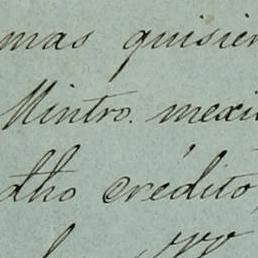 mas quisier
Mintro. mexi
dho crédito,